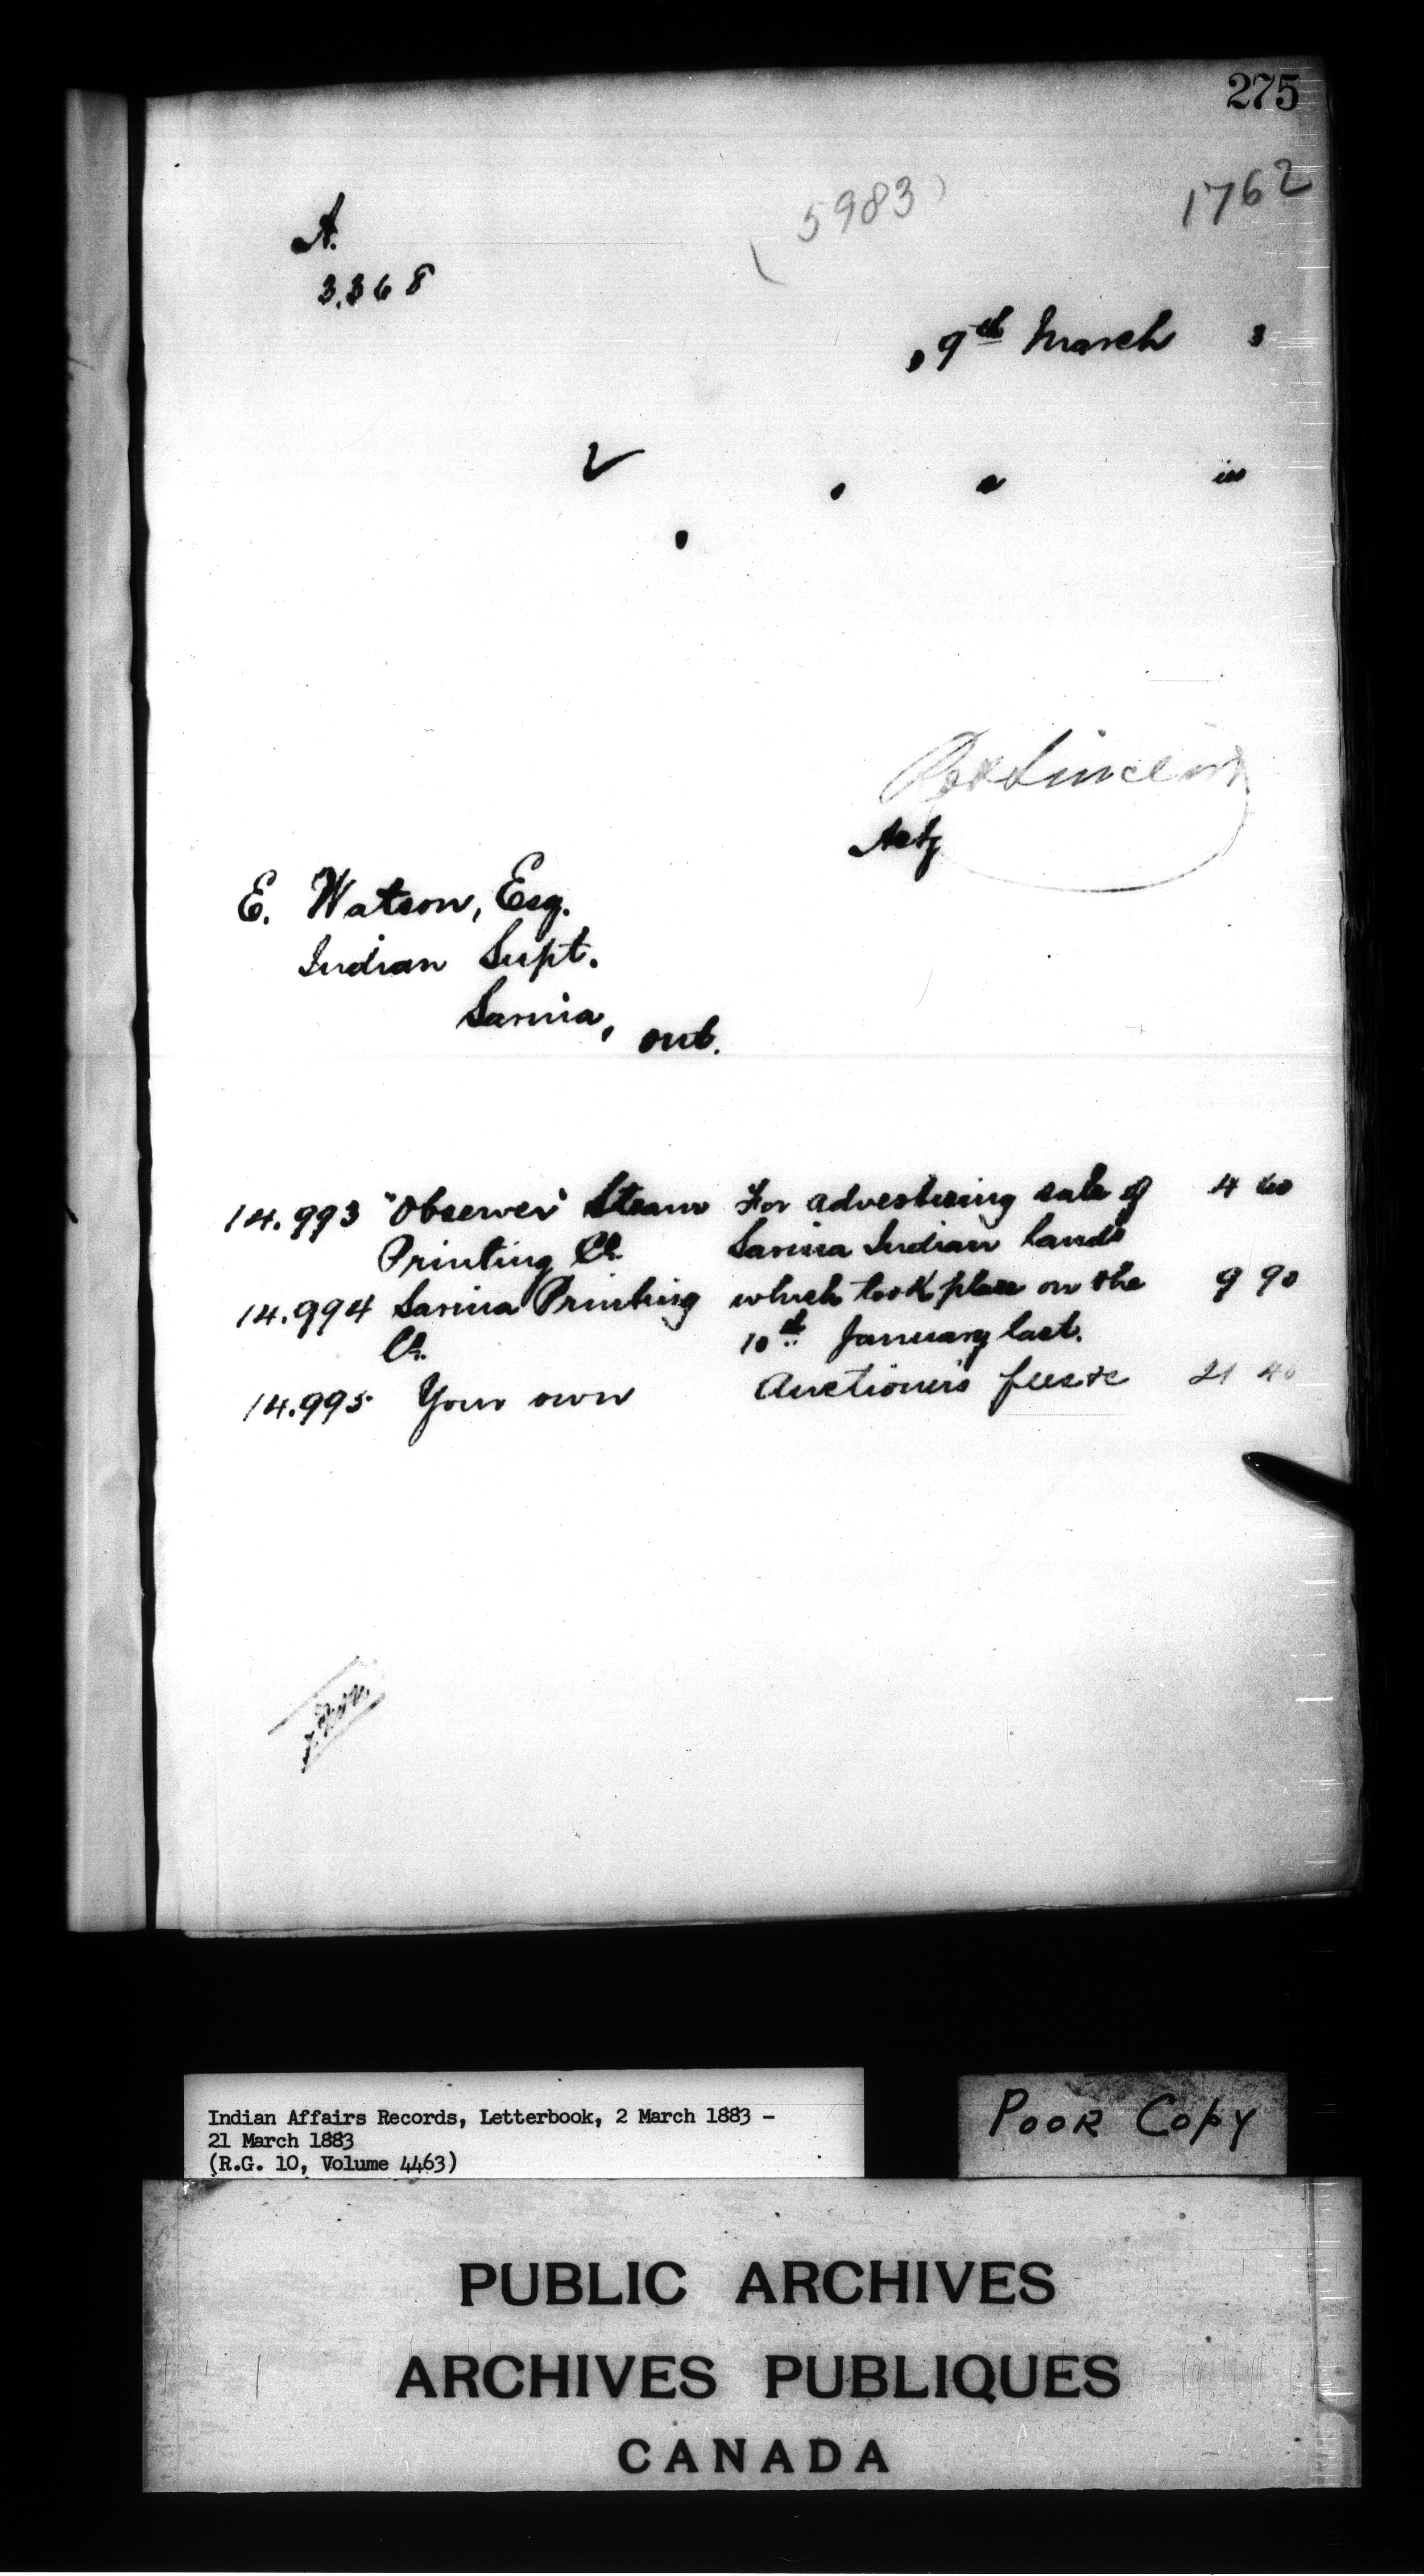 275
(5983)
1762
A.
3.368
9th March 3
Actg
E. Watson, Esq.
Indian Supt.
Sarnia, Ont.
14.993 "Observer" Steam For advertising sale of 4 60
Printing Co. Sarnia Indian Lands
14.994 Sarnia Printing which took place on the 9 90
Co. 10th January last.
14.995 Your own Auctioner's fees &c 21 40
Indian Affairs Records, Letterbook, 2 March 1883 -
21 March 1883
(R.G. 10, Volume 4463)
POOR COPY
PUBLIC ARCHIVES
ARCHIVES PUBLIQUES
CANADA